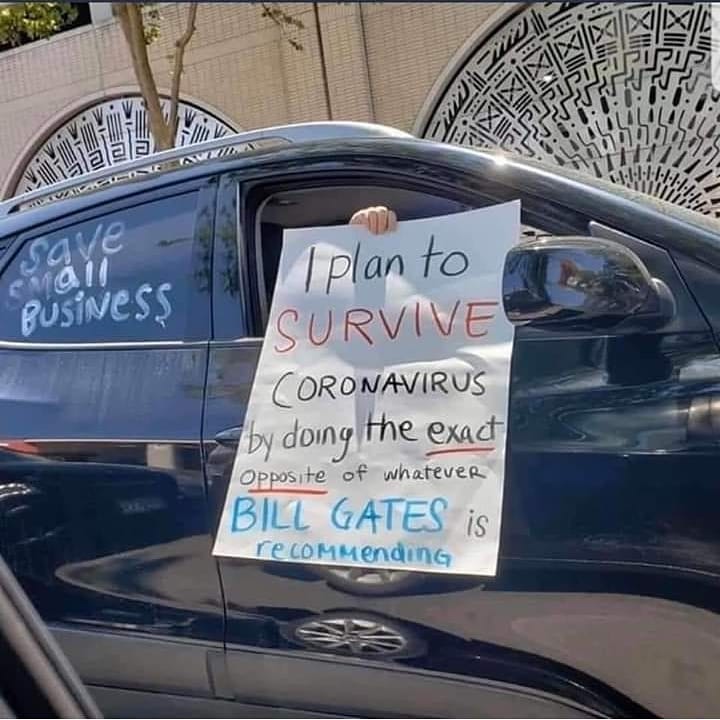 Save
small
BUSINESS
I plan to
SURVIVE
CORONAVIRUS
by doing the exact
opposite of whatever
BILL GATES is
recommending